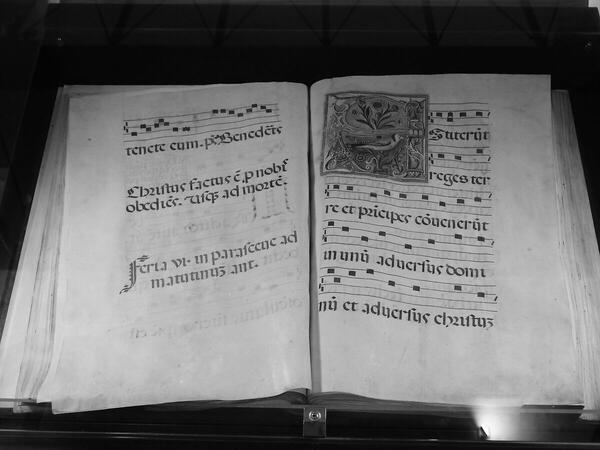 tenete eum. ps Benedc̄ts
Christus factus ē p nobꝭ
obediēs. Usqꝫ ad mortē.
Feria vi. in parasceue ad
matutinuꝫ ant.
Stiterūt
reges ter
re et prīcipes cōuenerūt
in unū aduersus domi
nū et aduersus christuꝫ